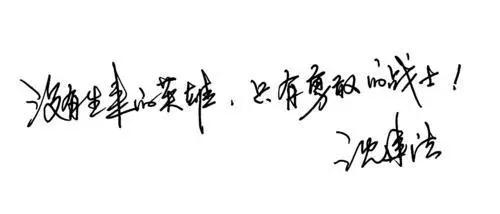 没有生来的英雄，只有勇敢的战士！
沈建法